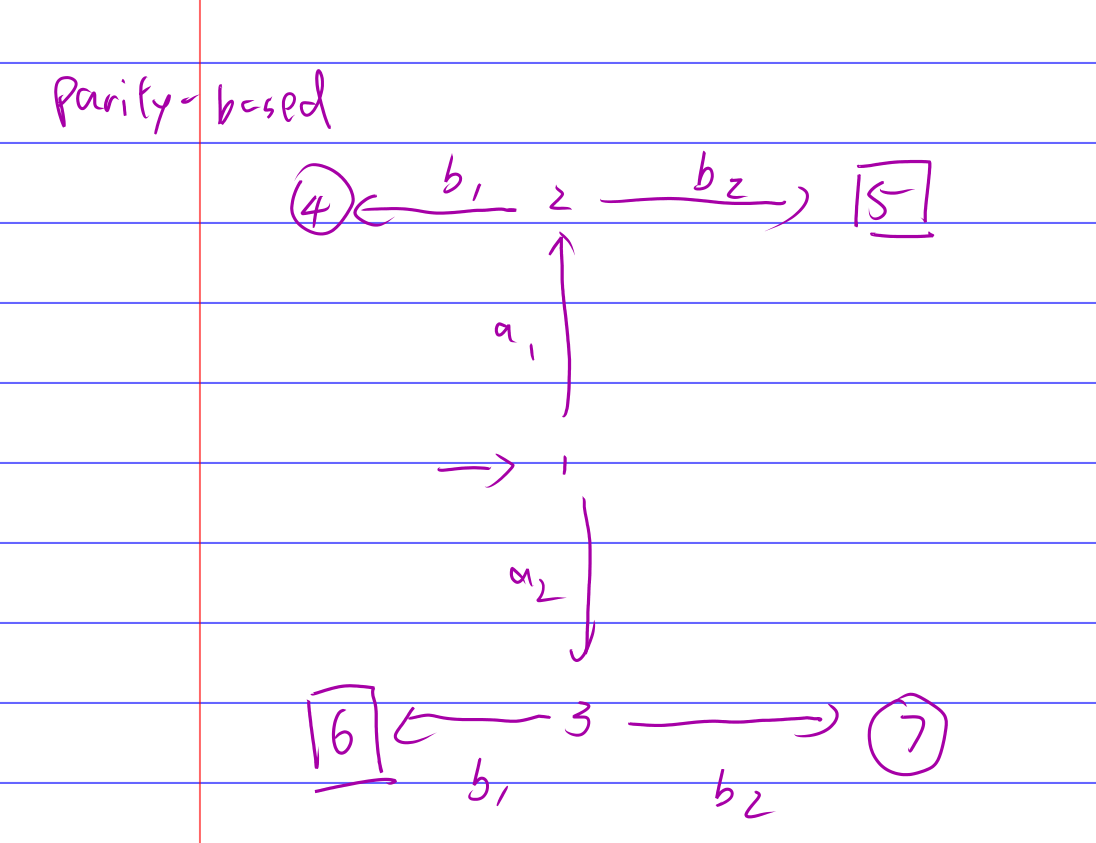 parity-based
4 b1 2 b2 5
a1
1
a2
6 3 7
b1 b2